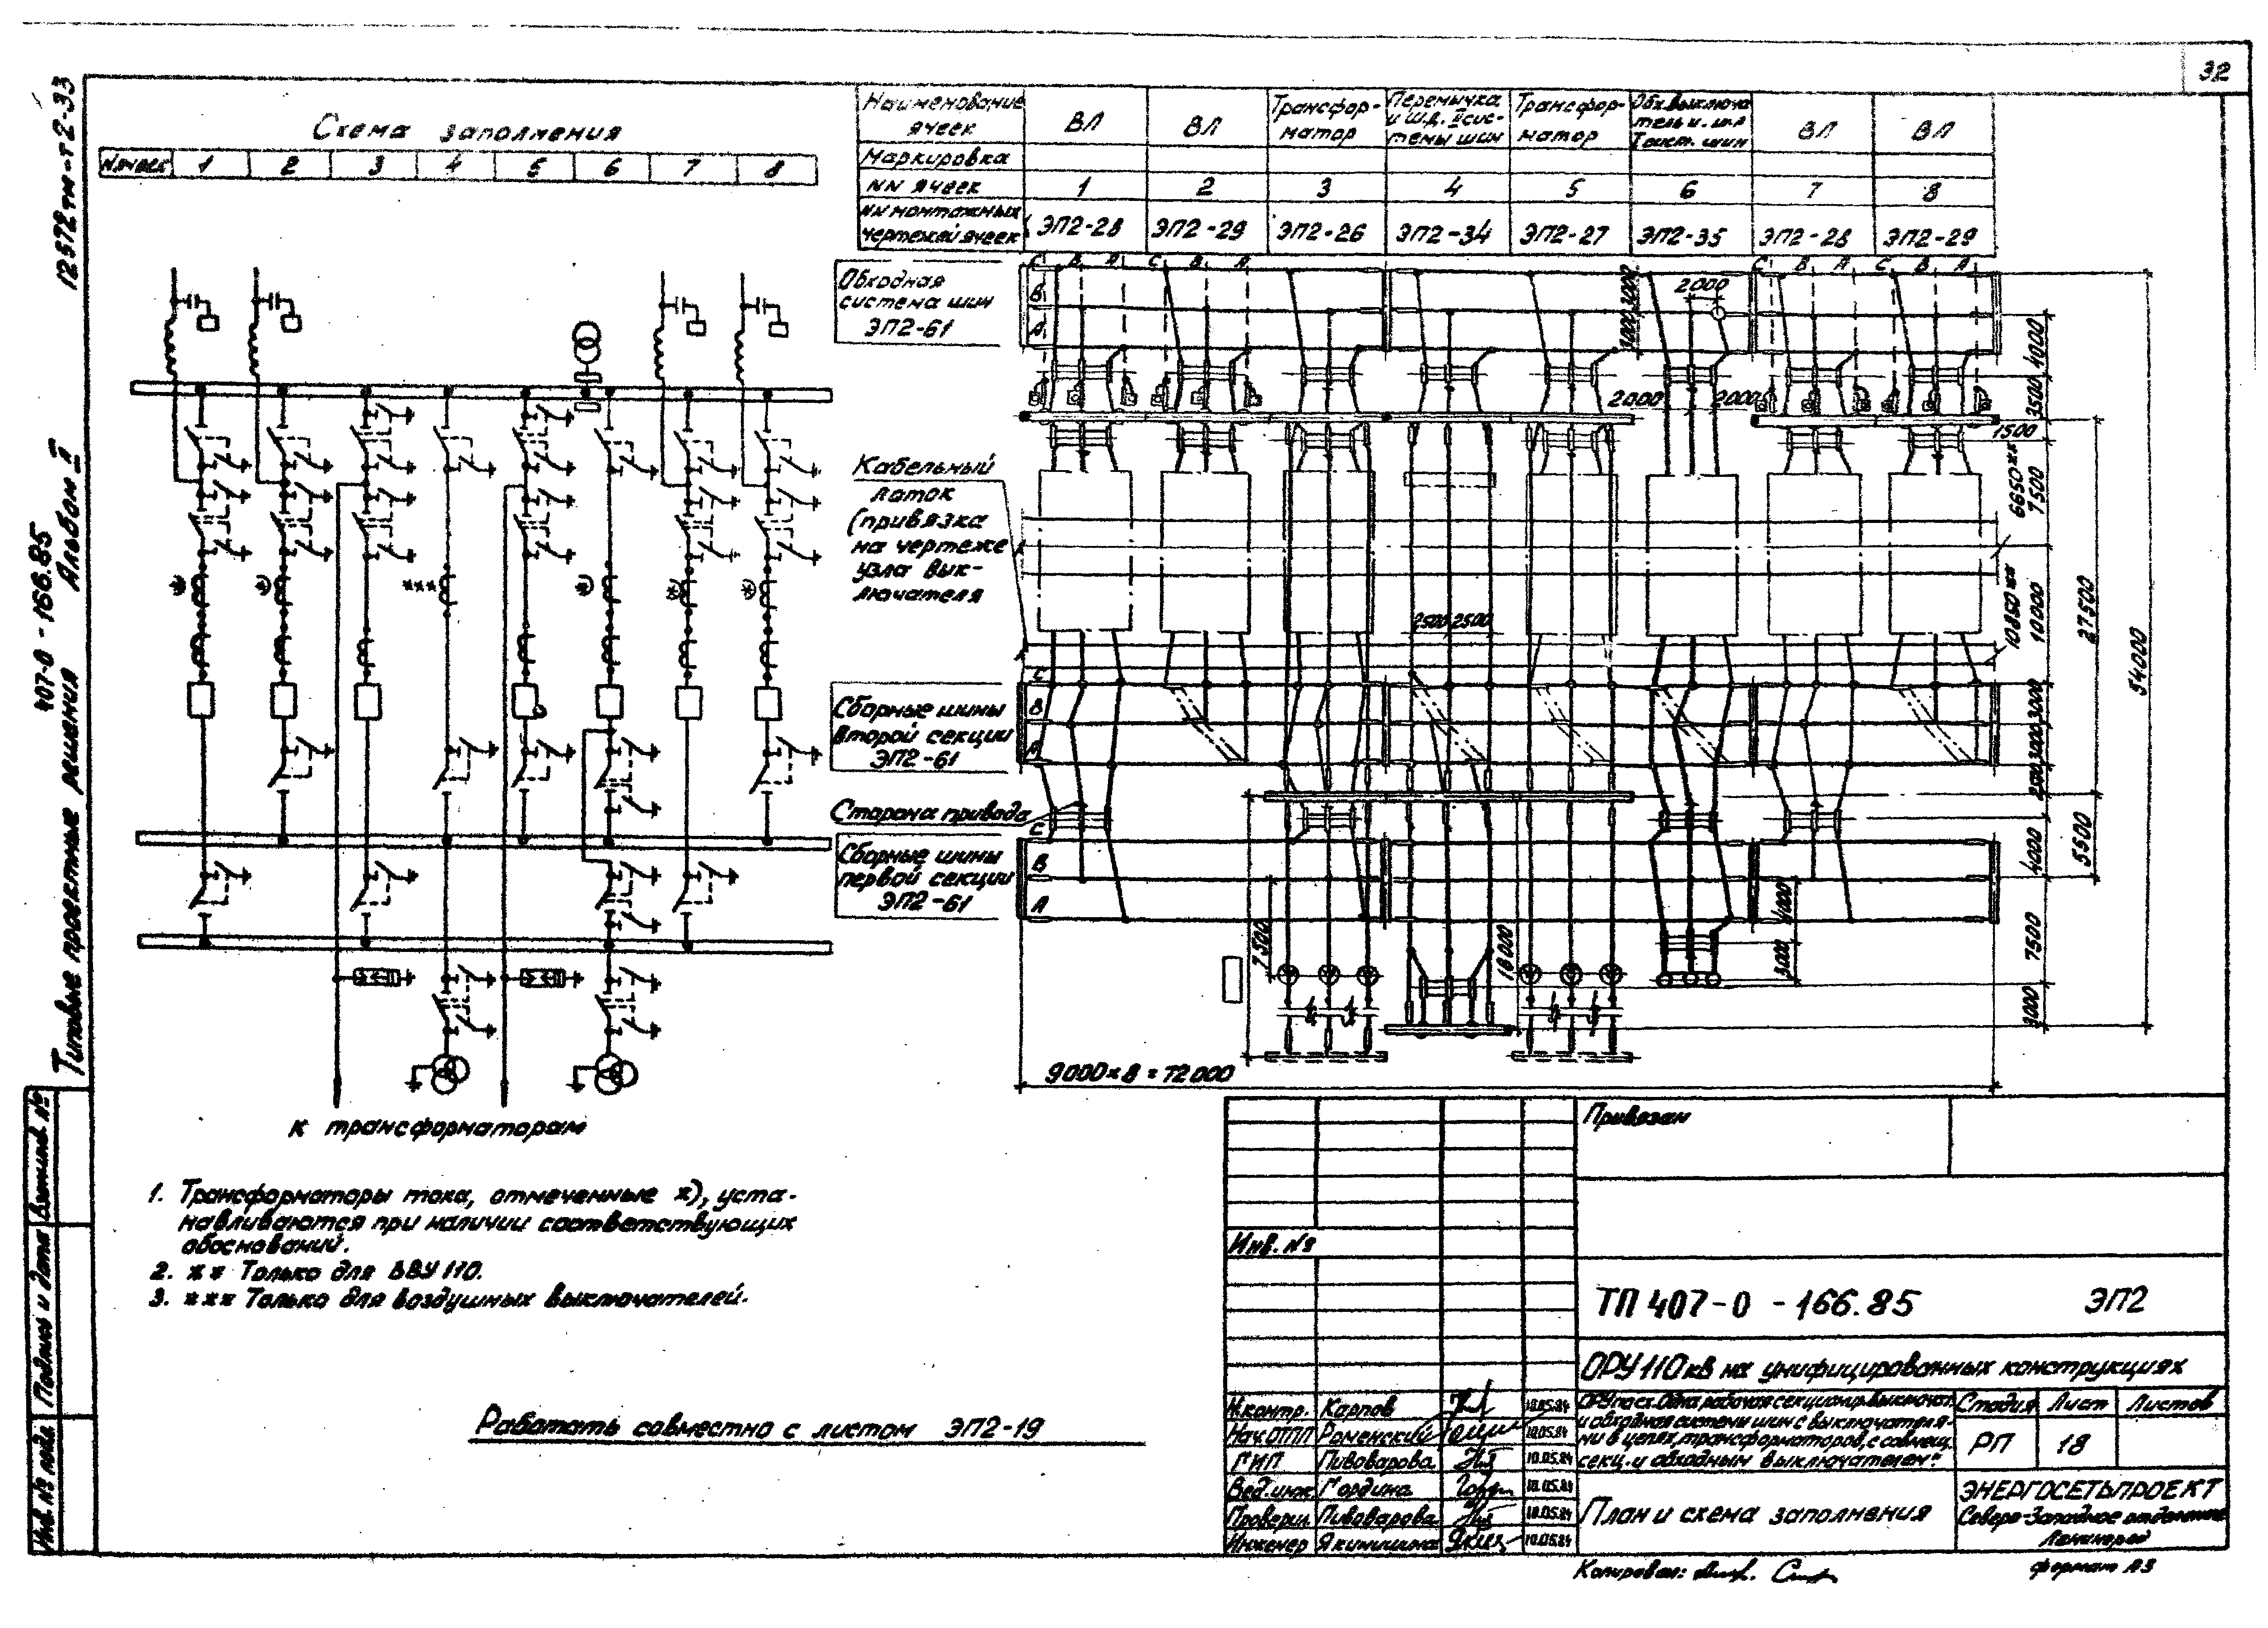 32
12572тм-т2-33
Типовые проектные решения 407-0-166.85 Альбом II
Схема заполнения
1 2 3 4 5 6 7 8
***
к трансформаторам
Наименование ячеек
ВЛ
ВЛ
Трансфор-
матор
Перемычка
и ш.а. II сис-
темы шин
Трансфор-
матор
ВЛ
ВЛ
Маркировка
NN ячеек 1 2 3 4 5 6 7 8
NN монтажных
чертежей ячеек ЭП2-28 ЭП2-29 ЭП2-26 ЭП2-34 ЭП2-27 ЭП2-35 ЭП2-28 ЭП2-29
Обходная
система шин
ЭП2-61
C B A C B A C B A C B A
B
A
3000 3000
2000
4000
3500
2000 2000
1500
Кабельный
лоток
(привязка
на чертеже
узла вык-
лючателя
6650**
7500
10850**
10000
27500
54000
2500 2500
Сборные шины
второй секции
ЭП2-61
C
B
A
3000 3000
2500
Сторона привода
Сборные шины
первой секции
ЭП2-61
C
B
A
4000
5500
7500
18000
4000
3000
7500
3000
9000×8=72000
1. Трансформаторы тока, отмеченные *), уста-
навливаются при наличии соответствующих
обоснований.
2. ** Только для ВВУ 110.
3. *** Только для воздушных выключателей.
Работать совместно с листом ЭП2-19
Взам.инв. №
Подпись и дата
Инв. № подл
Привязан
Инв. №
ТП 407-0-166.85 ЭП2
ОРУ 110 кВ на унифицированных конструкциях
Н.контр. Карпов 10.05.84
Нач.ОТПП Роменский 10.05.84
ГИП Пивоварова 10.05.84
Вед.инж. Гордина 10.05.84
Проверил Пивоварова 10.05.84
Инженер Якимшина 10.05.84
ОРУ по сх. Одна рабочая секционир. выключат.
и обходная системы шин с выключателя-
ми в цепях трансформаторов, с совмещ.
секц. и обходным выключателем"
Стадия Лист Листов
РП 18
План и схема заполнения
ЭНЕРГОСЕТЬПРОЕКТ
Северо-Западное отделение
Ленинград
Копировал:
формат А3